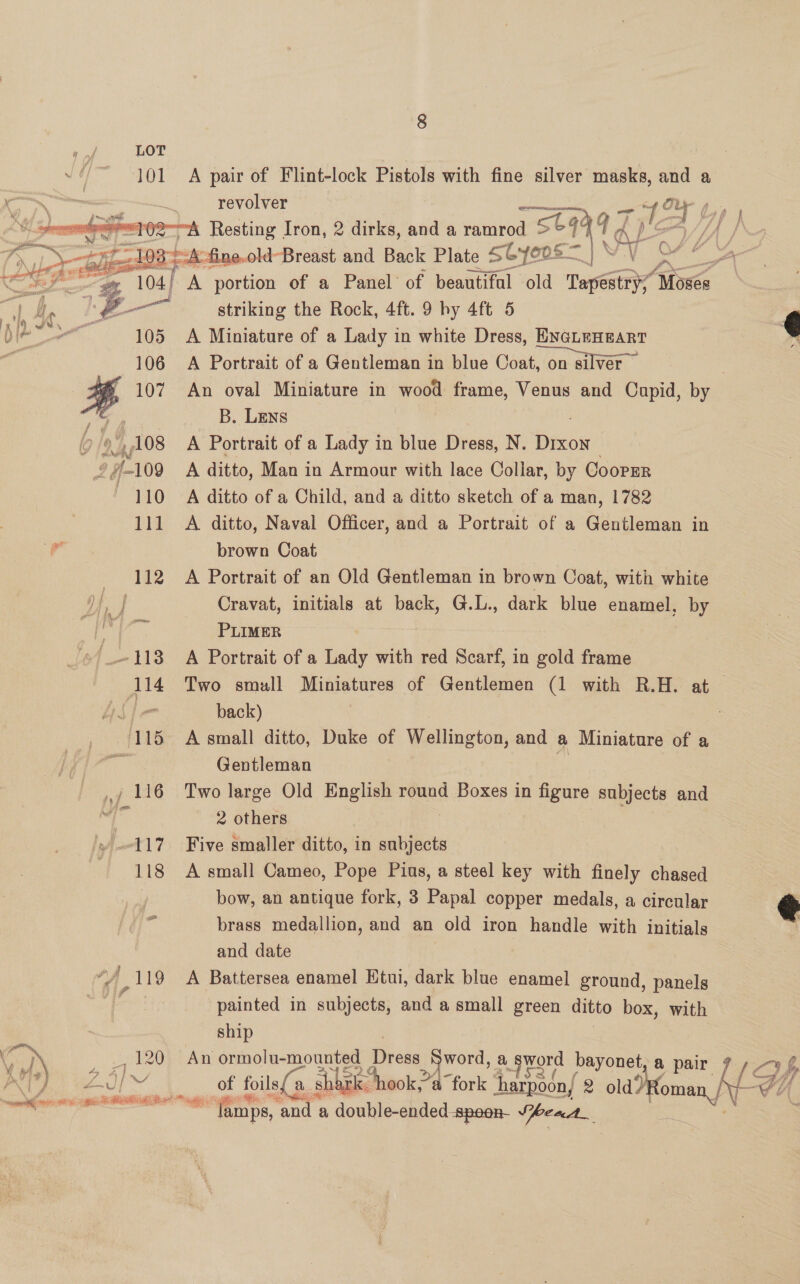 8
LOT
101 A pair of Flint-lock Pistols with fine silver masks, and a
revolver
102 A Resting Iron, 2 dirks, and a ramrod
103 A fine old Breast and Back Plate
104 A portion of a Panel of beautiful old Tapestry, Moses
striking the Rock, 4ft. 9 by 4ft 5
105 A Miniature of a Lady in white Dress, ENGLEHEART
106 A Portrait of a Gentleman in blue Coat, on silver
107 An oval Miniature in wood frame, Venus and Cupid, by
B. LENS
108 A Portrait of a Lady in blue Dress, N. DIXON
109 A ditto, Man in Armour with lace Collar, by COOPER
110 A ditto of a Child, and a ditto sketch of a man, 1782
111 A ditto, Naval Officer, and a Portrait of a Gentleman in
brown Coat
112 A Portrait of an Old Gentleman in brown Coat, with white
Cravat, initials at back, G.L., dark blue enamel, by
PLIMER
113 A Portrait of a Lady with red Scarf, in gold frame
114 Two small Miniatures of Gentlemen (1 with R.H. at
back)
115 A small ditto, Duke of Wellington, and a Miniature of a
Gentleman
116 Two large Old English round Boxes in figure subjects and
2 others
117 Five smaller ditto, in subjects
118 A small Cameo, Pope Pius, a steel key with finely chased
bow, an antique fork, 3 Papal copper medals, a circular
brass medallion, and an old iron handle with initials
and date
119 A Battersea enamel Etui, dark blue enamel ground, panels
painted in subjects, and a small green ditto box, with
ship
120 An ormolu-mounted Dress Sword, a sword bayonet, a pair
of foils, a shark hook, a fork harpoon, 2 old Roman
lamps, and a double-ended spoon